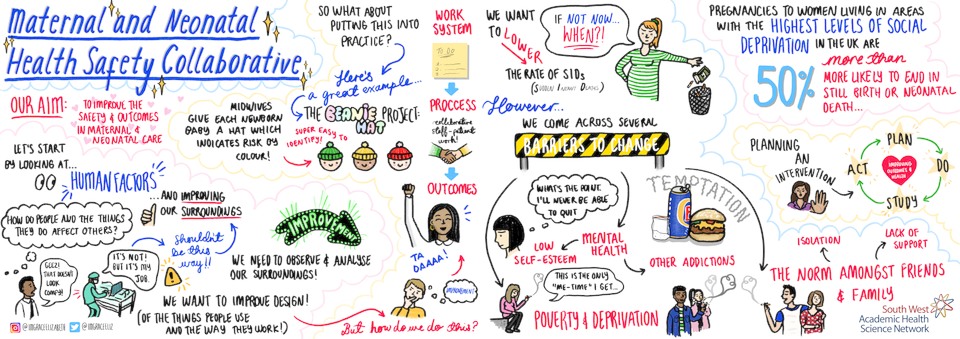 Maternal and Neonatal
Health Safety Collaborative
OUR AIM:
TO IMPROVE THE
SAFETY & OUTCOMES
IN MATERNAL &
NEONATAL CARE
LET'S START
BY LOOKING AT...
HUMAN FACTORS
HOW DO PEOPLE AND THE THINGS
THEY DO AFFECT OTHERS?
GEEZ!
THAT DOESN'T
LOOK
COMFY!
IT'S NOT!
BUT IT'S MY
JOB.
Shouldn't
be this
way!!
...AND IMPROVING
OUR SURROUNDINGS
@IMGRACELIZABETH
@IMGRACELIZ
SO WHAT ABOUT
PUTTING THIS INTO
PRACTICE?
Here's
a great example...
MIDWIVES
GIVE EACH NEWBORN
BABY A HAT WHICH
INDICATES RISK BY
COLOUR!
THE BEANIE
HAT
PROJECT:
SUPER EASY TO
IDENTIFY!
IMPROVEMENT
WE NEED TO OBSERVE & ANALYSE
OUR SURROUNDINGS!
WE WANT TO IMPROVE DESIGN!
(OF THE THINGS PEOPLE USE
AND THE WAY THEY WORK!)
But how do we do this?
WORK
SYSTEM
TO DO
PROCCESS
-collaborative
staff-patient
work!
OUTCOMES
TA
DAAAA!
IMPROVEMENT
WE WANT
TO LOWER
THE RATE OF SIDs
(SUDDEN INFANT DEATHS)
IF NOT NOW...
WHEN?!
However...
WE COME ACROSS SEVERAL
BARRIERS TO CHANGE
WHAT'S THE POINT.
I'LL NEVER BE ABLE
TO QUIT
LOW
SELF-ESTEEM
MENTAL
HEALTH
THIS IS THE ONLY
"ME-TIME" I GET...
POVERTY & DEPRIVATION
TEMPTATION
OTHER ADDICTIONS
PREGNANCIES TO WOMEN LIVING IN AREAS
WITH THE HIGHEST LEVELS OF SOCIAL
DEPRIVATION IN THE UK ARE
50%
more than
MORE LIKELY TO END IN
STILL BIRTH OR NEONATAL
DEATH...
PLANNING
AN
INTERVENTION
PLAN
DO
STUDY
ACT
IMPROVING
OUTCOMES &
HEALTH
ISOLATION
LACK OF
SUPPORT
THE NORM AMONGST FRIENDS
& FAMILY
South West
Academic Health
Science Network